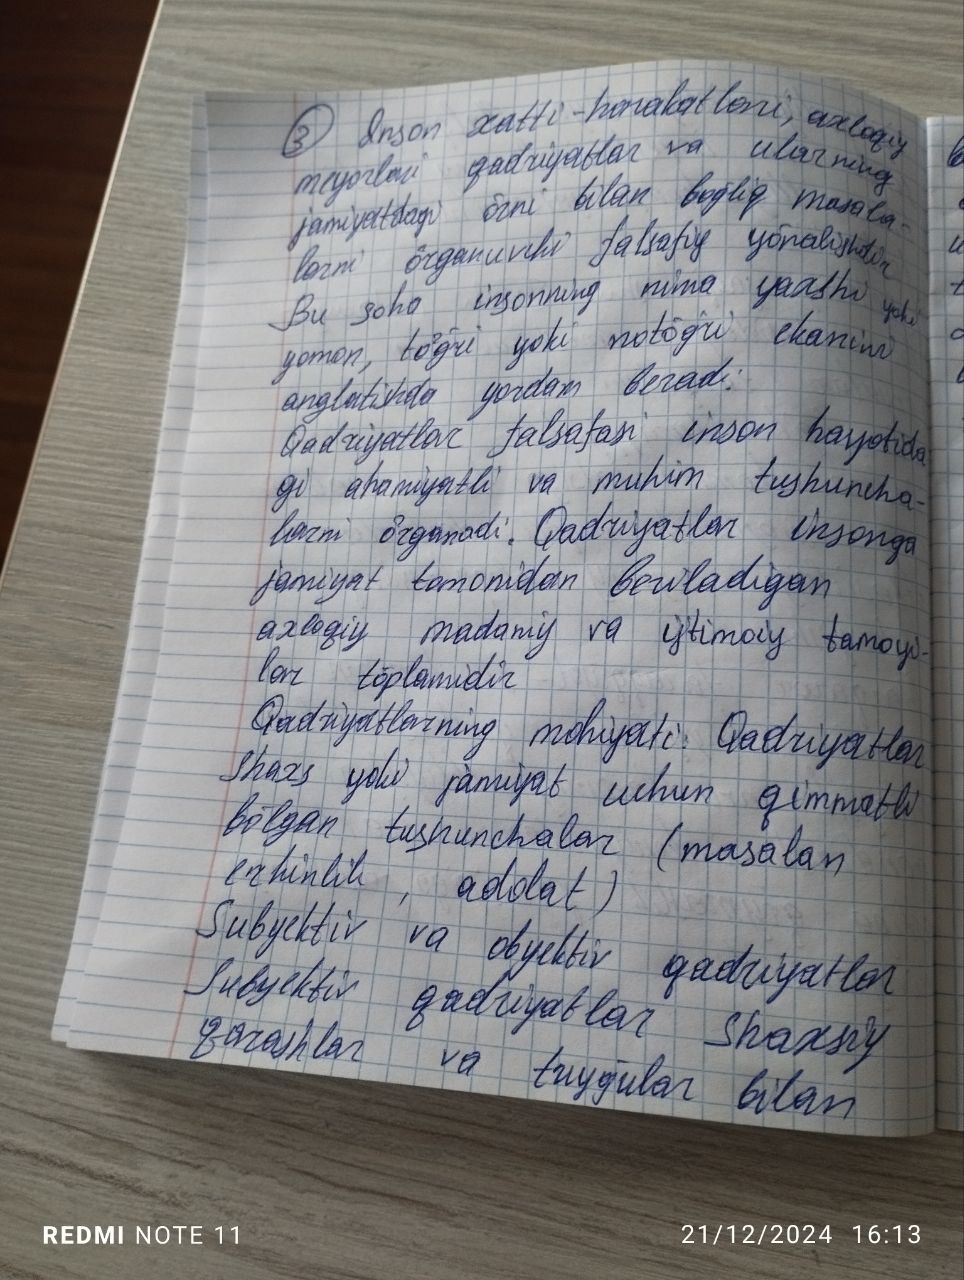 3 Inson xatti-harakatlari, axloqiy
meyorlari qadriyatlar va ularning
jamiyatdagi o'rni bilan bog'liq masala-
larni o'rganuvchi falsafiy yo'nalishdir
Bu soha insonning nima yaxshi yoki
yomon, to'g'ri yoki noto'g'ri ekanini
anglatishda yordam beradi.
Qadriyatlar falsafasi inson hayotida
gi ahamiyatli va muhim tushuncha-
larni o'rganadi. Qadriyatlar insonga
jamiyat tomonidan beriladigan
axloqiy madaniy va ijtimoiy tamoyi-
lar to'plamidir
Qadriyatlarning mohiyati: Qadriyatlar
Shaxs yoki jamiyat uchun qimmatli
bo'lgan tushunchalar (masalan
erkinlik, adolat)
Subyektiv va obyektiv qadriyatlar
Subyektiv qadriyatlar Shaxsiy
qarashlar va tuyg'ular bilan
REDMI NOTE 11
21/12/2024 16:13